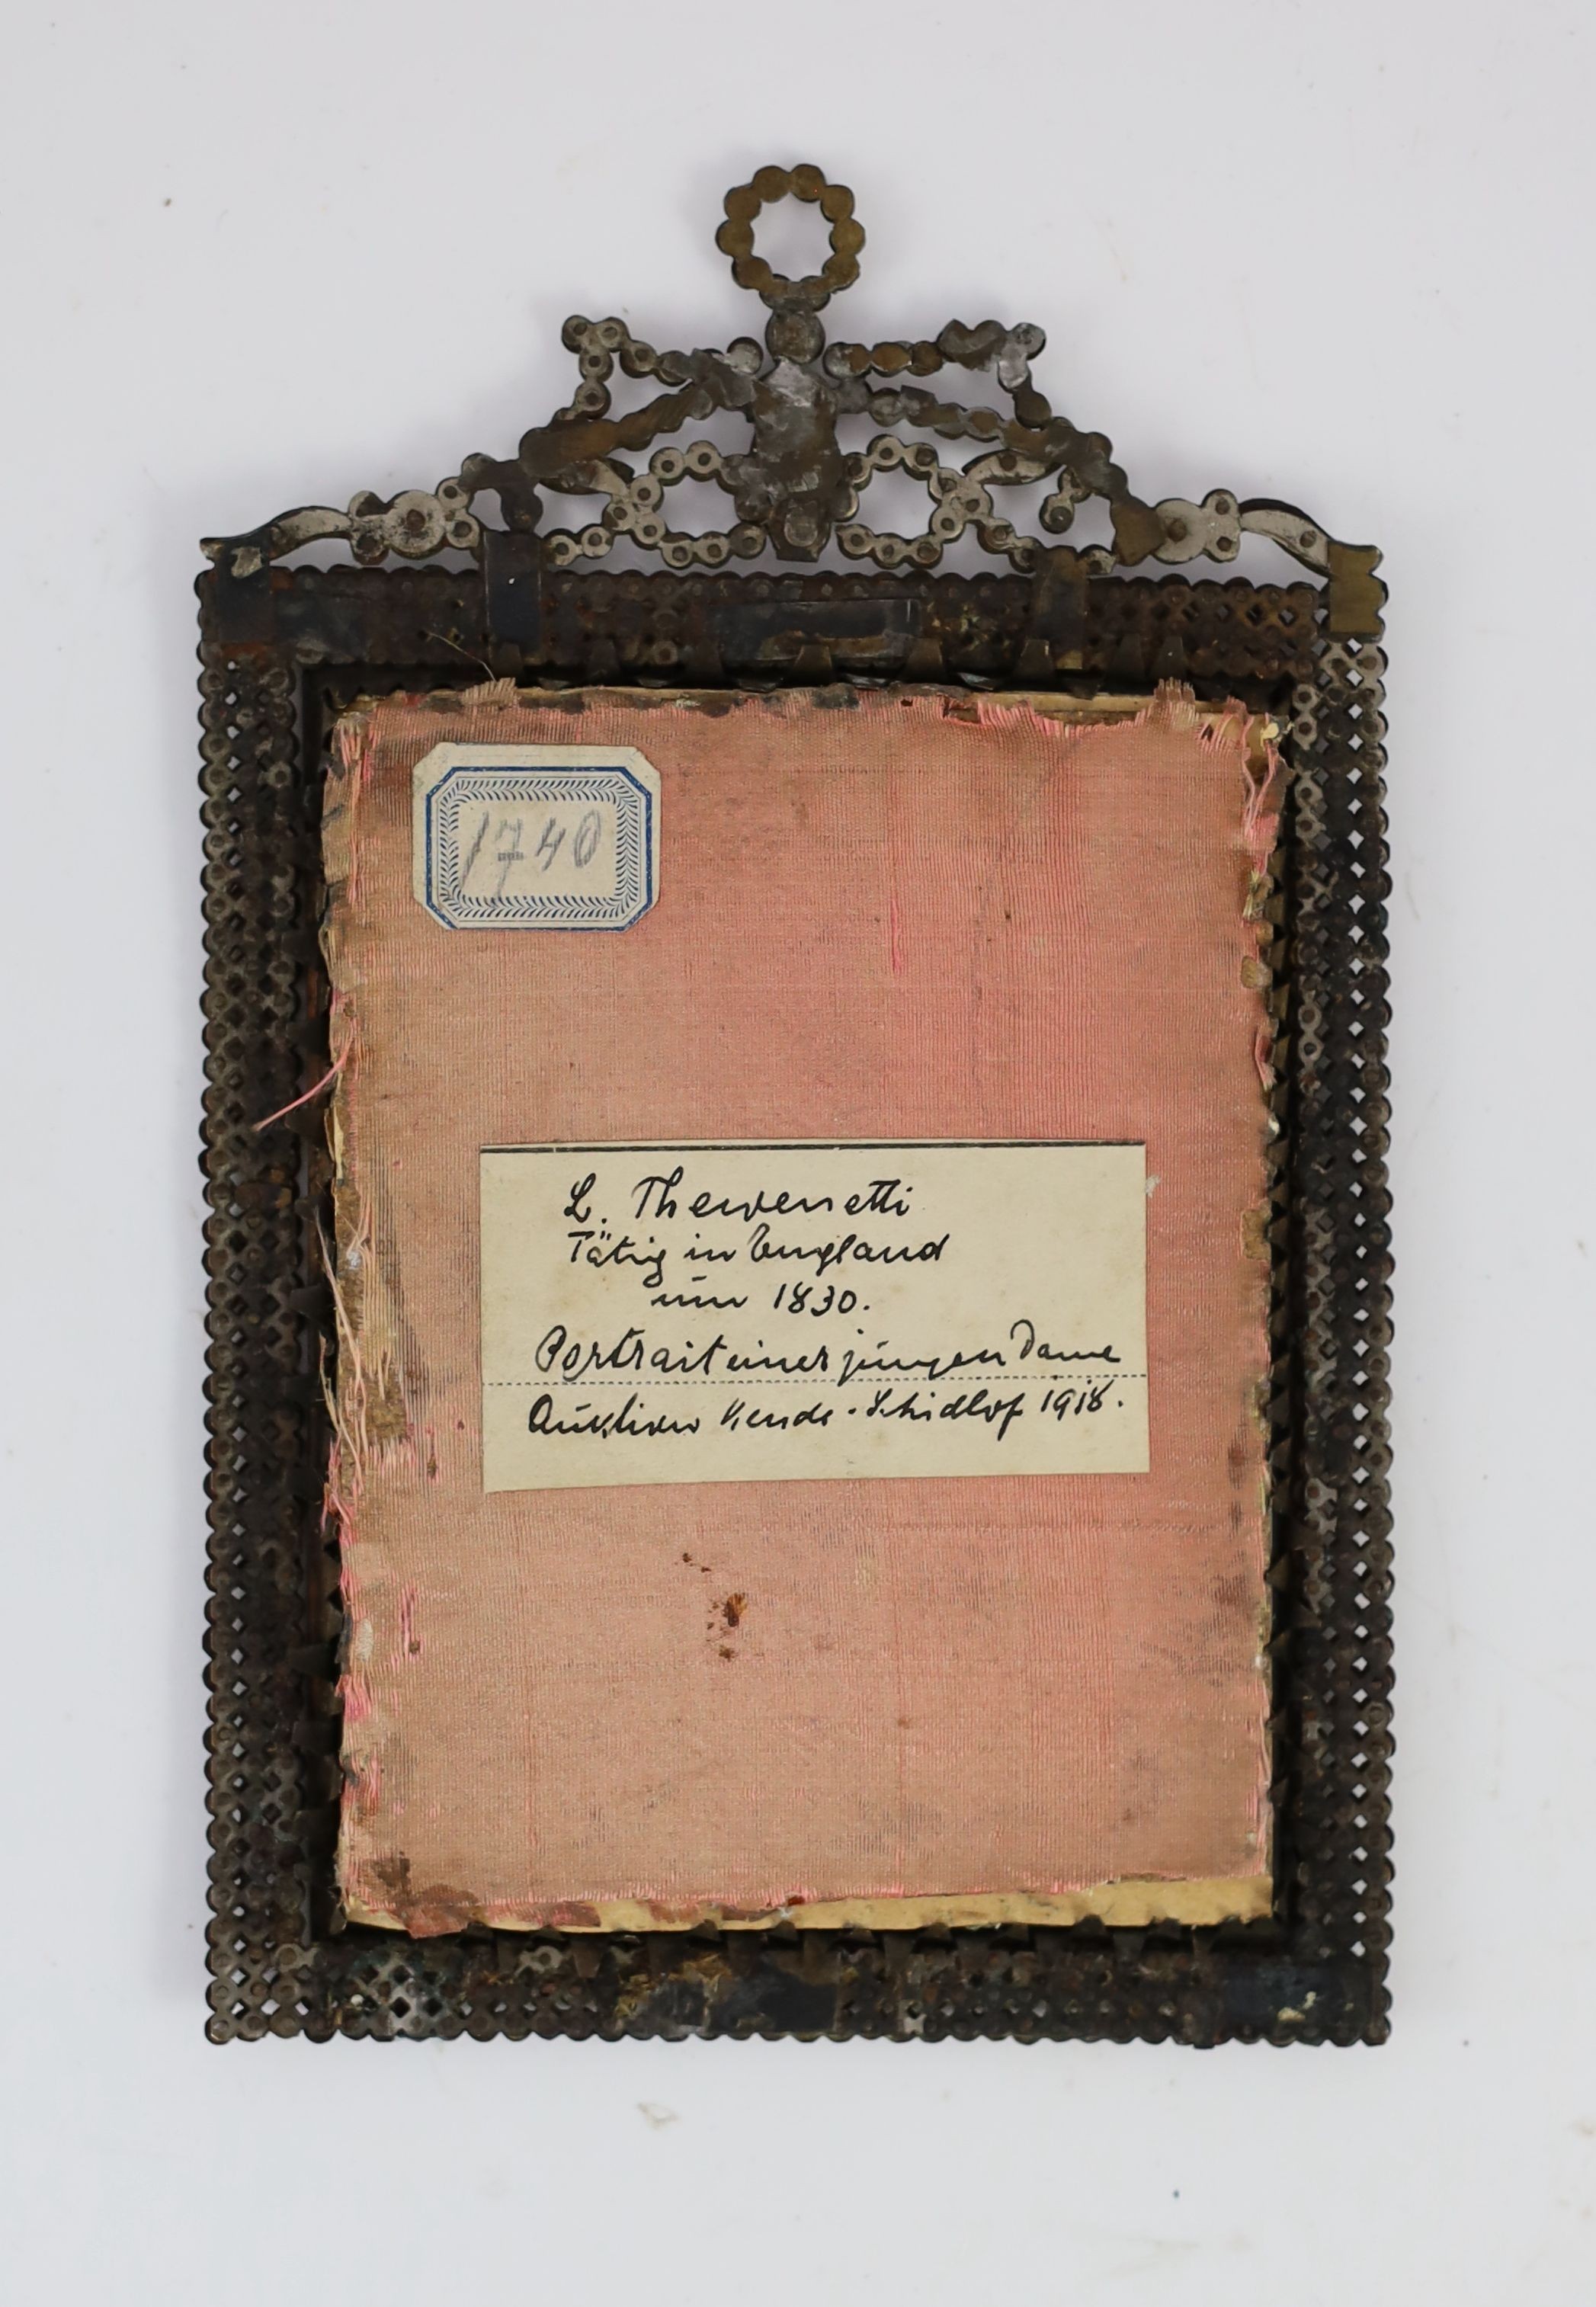 1740
L. Thewenetti
Tätig in England
um 1830.
Portrait einer jungen Dame
Auktion Kende-Schidlof 1918.